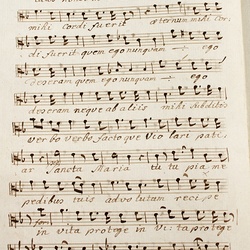 mihi cordi fuerit æternum mihi cor
di fuerit quem ego nunquam ego
deseram quem ego nunquam ego
deseram neque ab aliis mihi subditos
verbo verbo facto que vio lari pati
ar Sancta Maria tu tu pia me
pedibus tuis advolutam recipe
in vita protege in vita protege